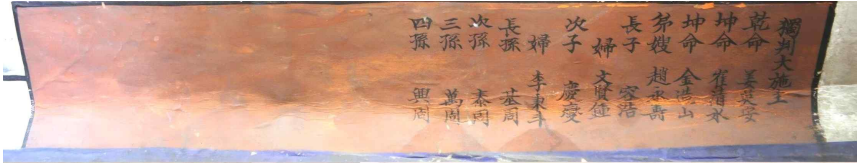 獨判大施主
乾命 姜
坤命 崔
坤命 金 山
弟嫂 趙 壽
長子 容浩
婦 文賢鍾
次子 慶慶
婦 李東斗
長孫 基周
次孫 泰周
三孫 萬周
四孫 興周